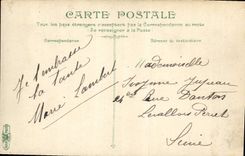 CARTE POSTALE
Tous les pays étrangers n'acceptent pas la Correspondance au recto
Se renseigner à la Poste
Correspondance
Adresse du destinataire
Je t'embrasse
ta tante
Marie Lambert
Mademoiselle
24 Rue Danton
Levallois Perret
Seine